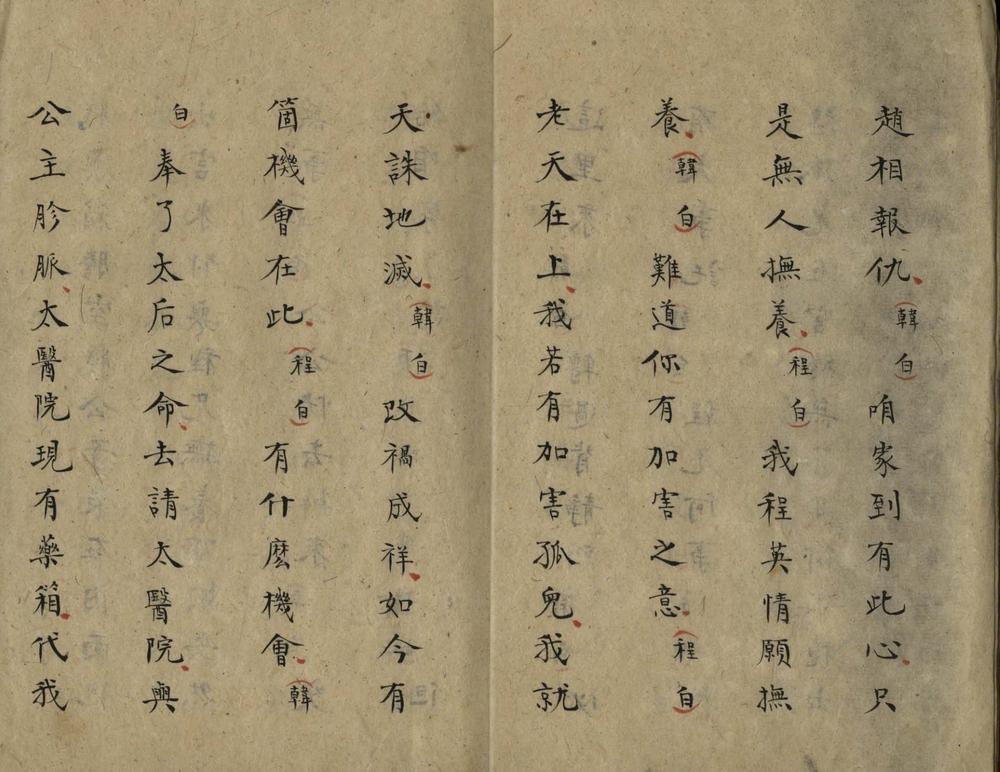 趙相報仇韓白咱家到有此心只
是無人撫養程白我程英情願撫
養韓白難道你有加害之意程白
老天在上我若有加害孤兒我就
天誅地滅韓白改禍成祥如今有
箇機會在此程白有什麽機會韓
白奉了太后之命去請太醫院與
公主胗脈太醫院現有藥箱代我